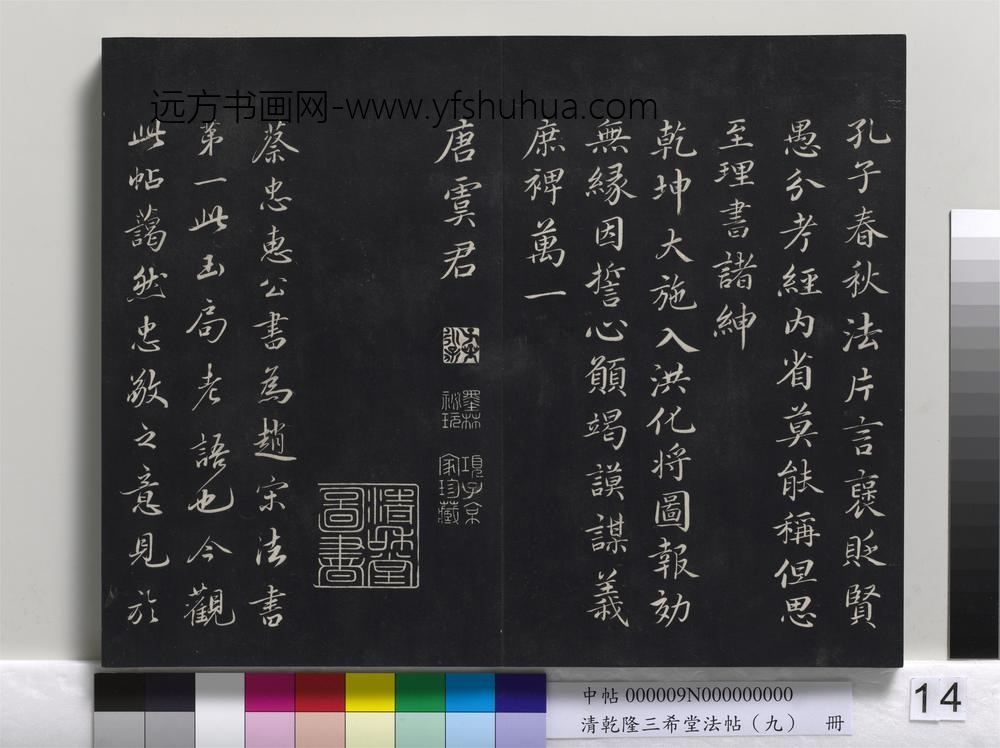 远方书画网-www.yfshuhua.com
孔子春秋法片言襃貶賢
愚分考經内省莫能稱但思
至理書諸紳
乾坤大施入洪化将圖報効
無緣因誓心願竭謨謀義
庶裨萬一
唐虞君
墨林
祕玩
項子京
家珍藏
蔡忠惠公書為趙宋法書
第一此玉局老語也今觀
此帖藹然忠敬之意見於
中帖 000009N000000000
清乾隆三希堂法帖（九） 冊
14